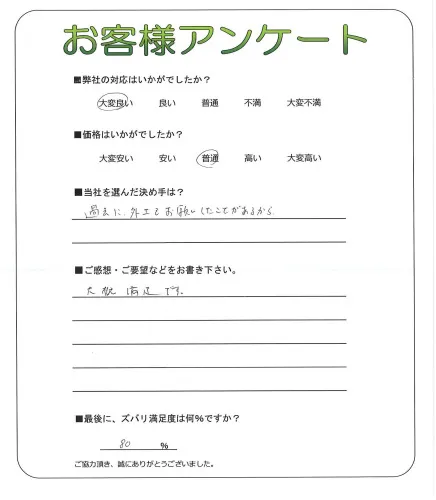 お客様アンケート
■弊社の対応はいかがでしたか？
大変良い 良い 普通 不満 大変不満
■価格はいかがでしたか？
大変安い 安い 普通 高い 大変高い
■当社を選んだ決め手は？
過去に、外工事お願いしたことがあるから
■ご感想・ご要望などをお書き下さい。
大抵満足です。
■最後に、ズバリ満足度は何%ですか？
80 %
ご協力頂き、誠にありがとうございました。